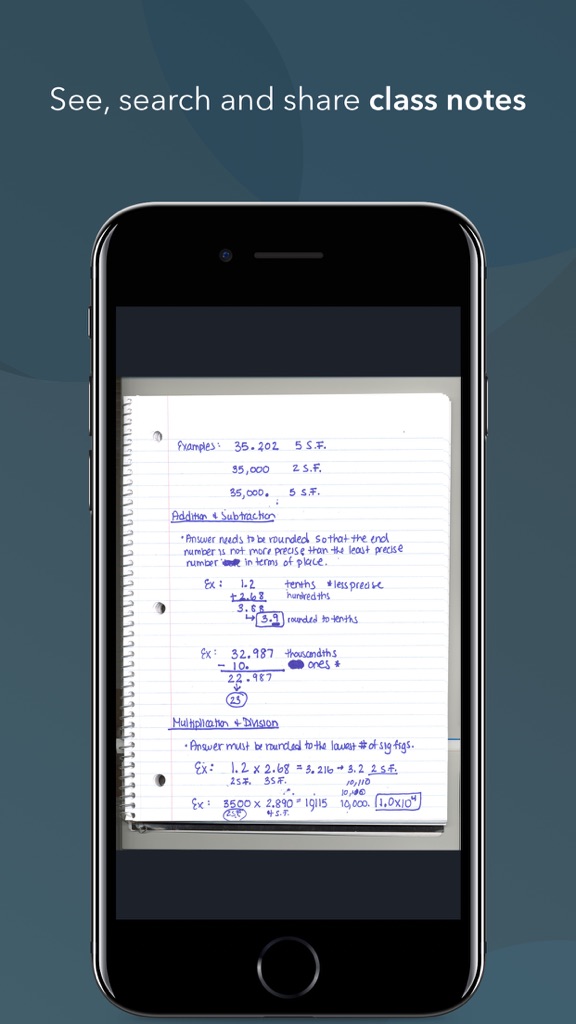 See, search and share class notes
Examples: 35.202 5 S.F.
35,000 2 S.F.
35,000. 5 S.F.
Addition & Subtraction
• Answer needs to be rounded so that the end
number is not more precise than the least precise
number in terms of place.
Ex: 1.2 tenths *less precise
+2.68 hundredths
3.88
↳ 3.9 rounded to tenths
Ex: 32.987 thousandths
- 10. ones *
22.987
↓
23
Multiplication & Division
• Answer must be rounded to the lowest # of sig figs.
Ex: 1.2 x 2.68 = 3.216 → 3.2 2 S.F.
2 S.F. 3 S.F.
10,110
Ex: 3500 x 2.890 = 10,115 10,000. 1.0x10⁴
2 S.F. 4 S.F.